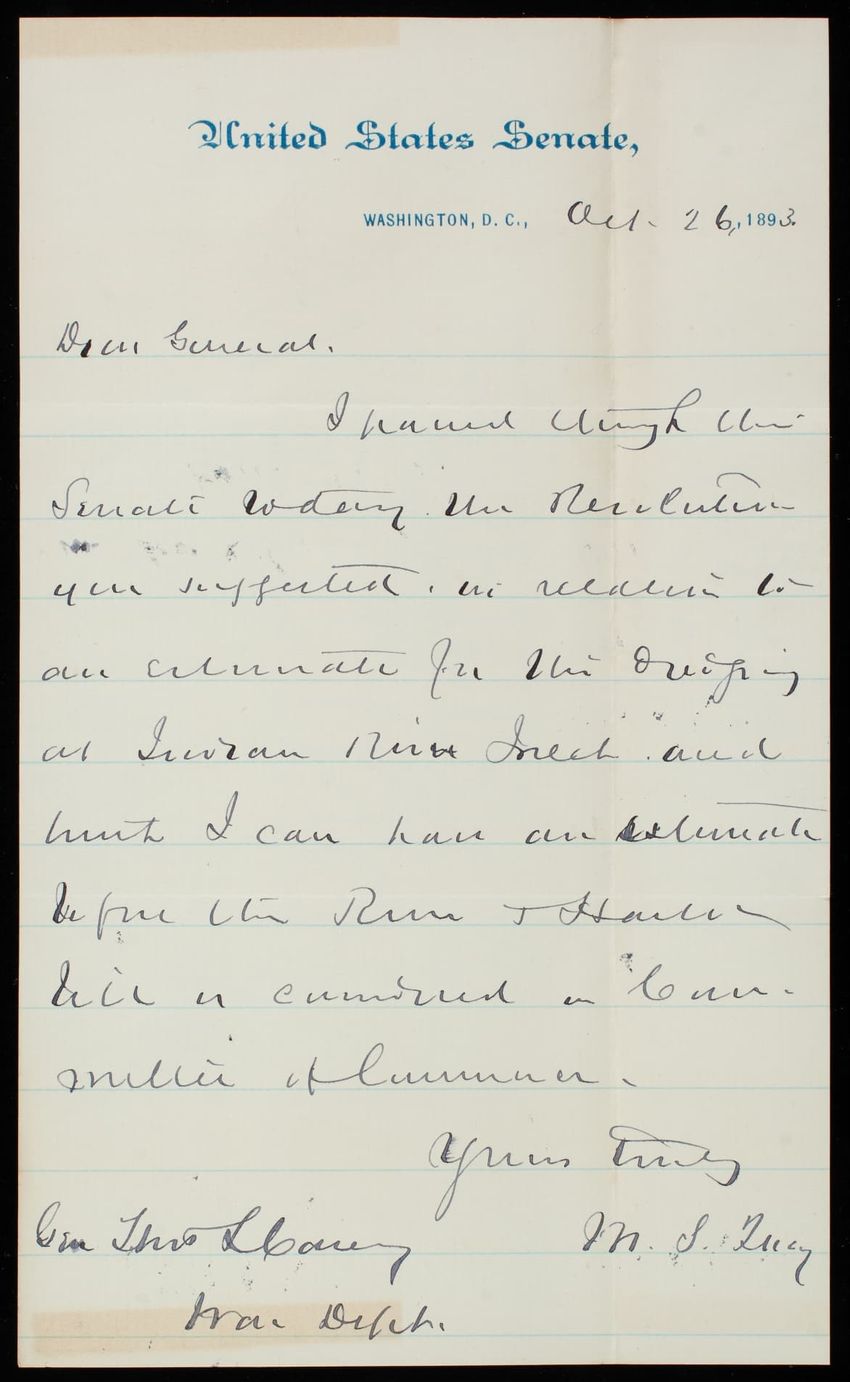 United States Senate,
WASHINGTON, D. C., Oct. 26, 1893.
Dear General.
I passed through the
Senate today the Resolution
you suggested. in relation to
an estimate for the dredging
at Indian River Inlet and
trust I can have an estimate
before the River & Harbor
bill is considered in Com-
mittee of Commerce.
Yours truly
Gen Thos L Casey M. S. Quay
War Dept.